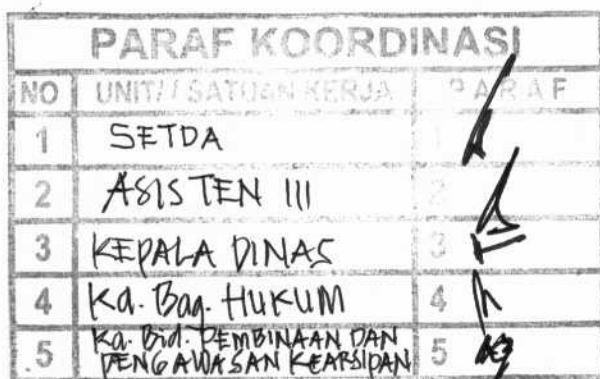 PARAF KOORDINASI
NO UNIT / SATUAN KERJA PARAF
1 SETDA 1
2 ASISTEN III 2
3 KEPALA DINAS 3
4 Ka. Bag. HUKUM 4
5 Ka. Bid. PEMBINAAN DAN
PENGAWASAN KEARSIPAN 5